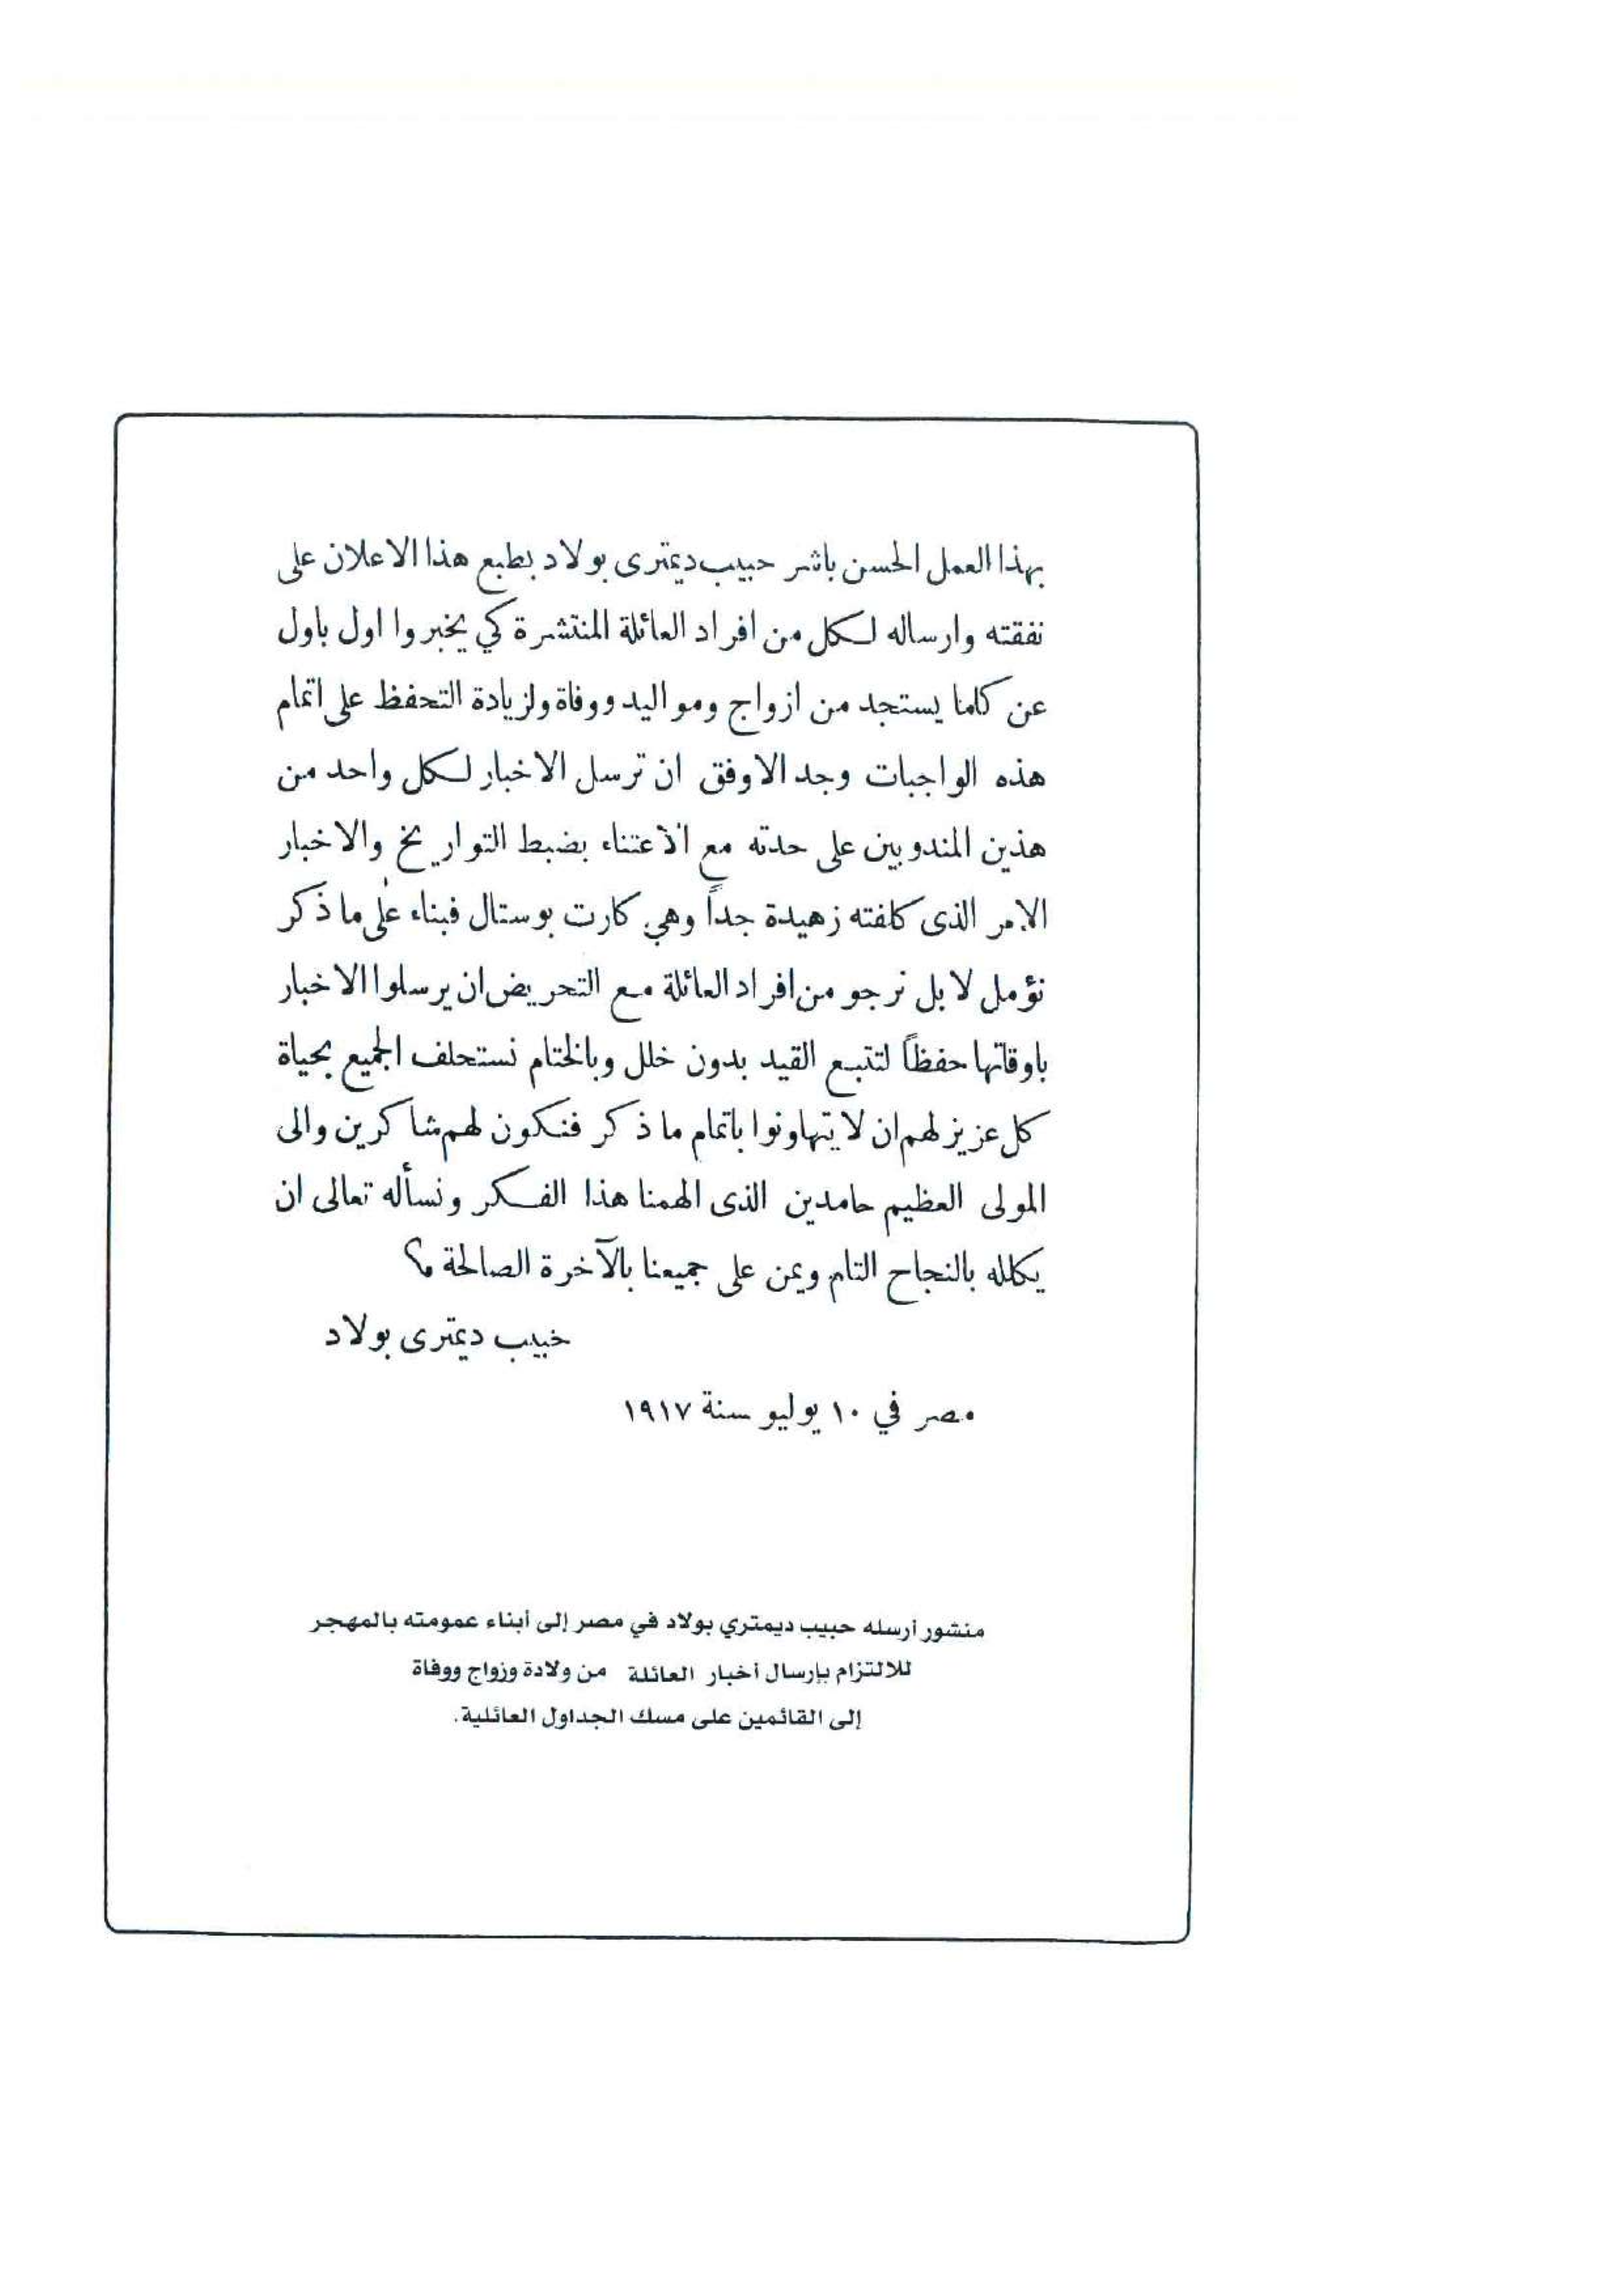 بهذا العمل الحسن باشر حبيب ديمترى بولاد بطبع هذا الاعلان على
نفقته وارساله لكل من افراد العائلة المنتشرة كي يخبروا اول باول
عن كلما يستجد من ازواج ومواليد ووفاة ولزيادة التحفظ على اتمام
هذه الواجبات وجد الاوفق ان ترسل الاخبار لكل واحد من
هذين المندوبين على حدته مع الاعتناء بضبط التواريخ والاخبار
الامر الذى كلفته زهيدة جداً وهي كارت بوستال فبناء على ما ذكر
نؤمل لا بل نرجو من افراد العائلة مع التحريض ان يرسلوا الاخبار
باوقاتها حفظاً لتتبع القيد بدون خلل وبالختام نستحلف الجميع بحياة
كل عزيز لهم ان لا يتهاونوا باتمام ما ذكر فنكون لهم شاكرين والى
المولى العظيم حامدين الذى الهمنا هذا الفكر ونسأله تعالى ان
يكلله بالنجاح التام ويمن على جميعنا بالآخرة الصالحة م؟
خبيب ديمترى بولاد
مصر في ١٠ يوليو سنة ١٩١٧
منشور أرسله حبيب ديمتري بولاد في مصر إلى أبناء عمومته بالمهجر
للالتزام بإرسال أخبار العائلة من ولادة وزواج ووفاة
إلى القائمين على مسك الجداول العائلية.